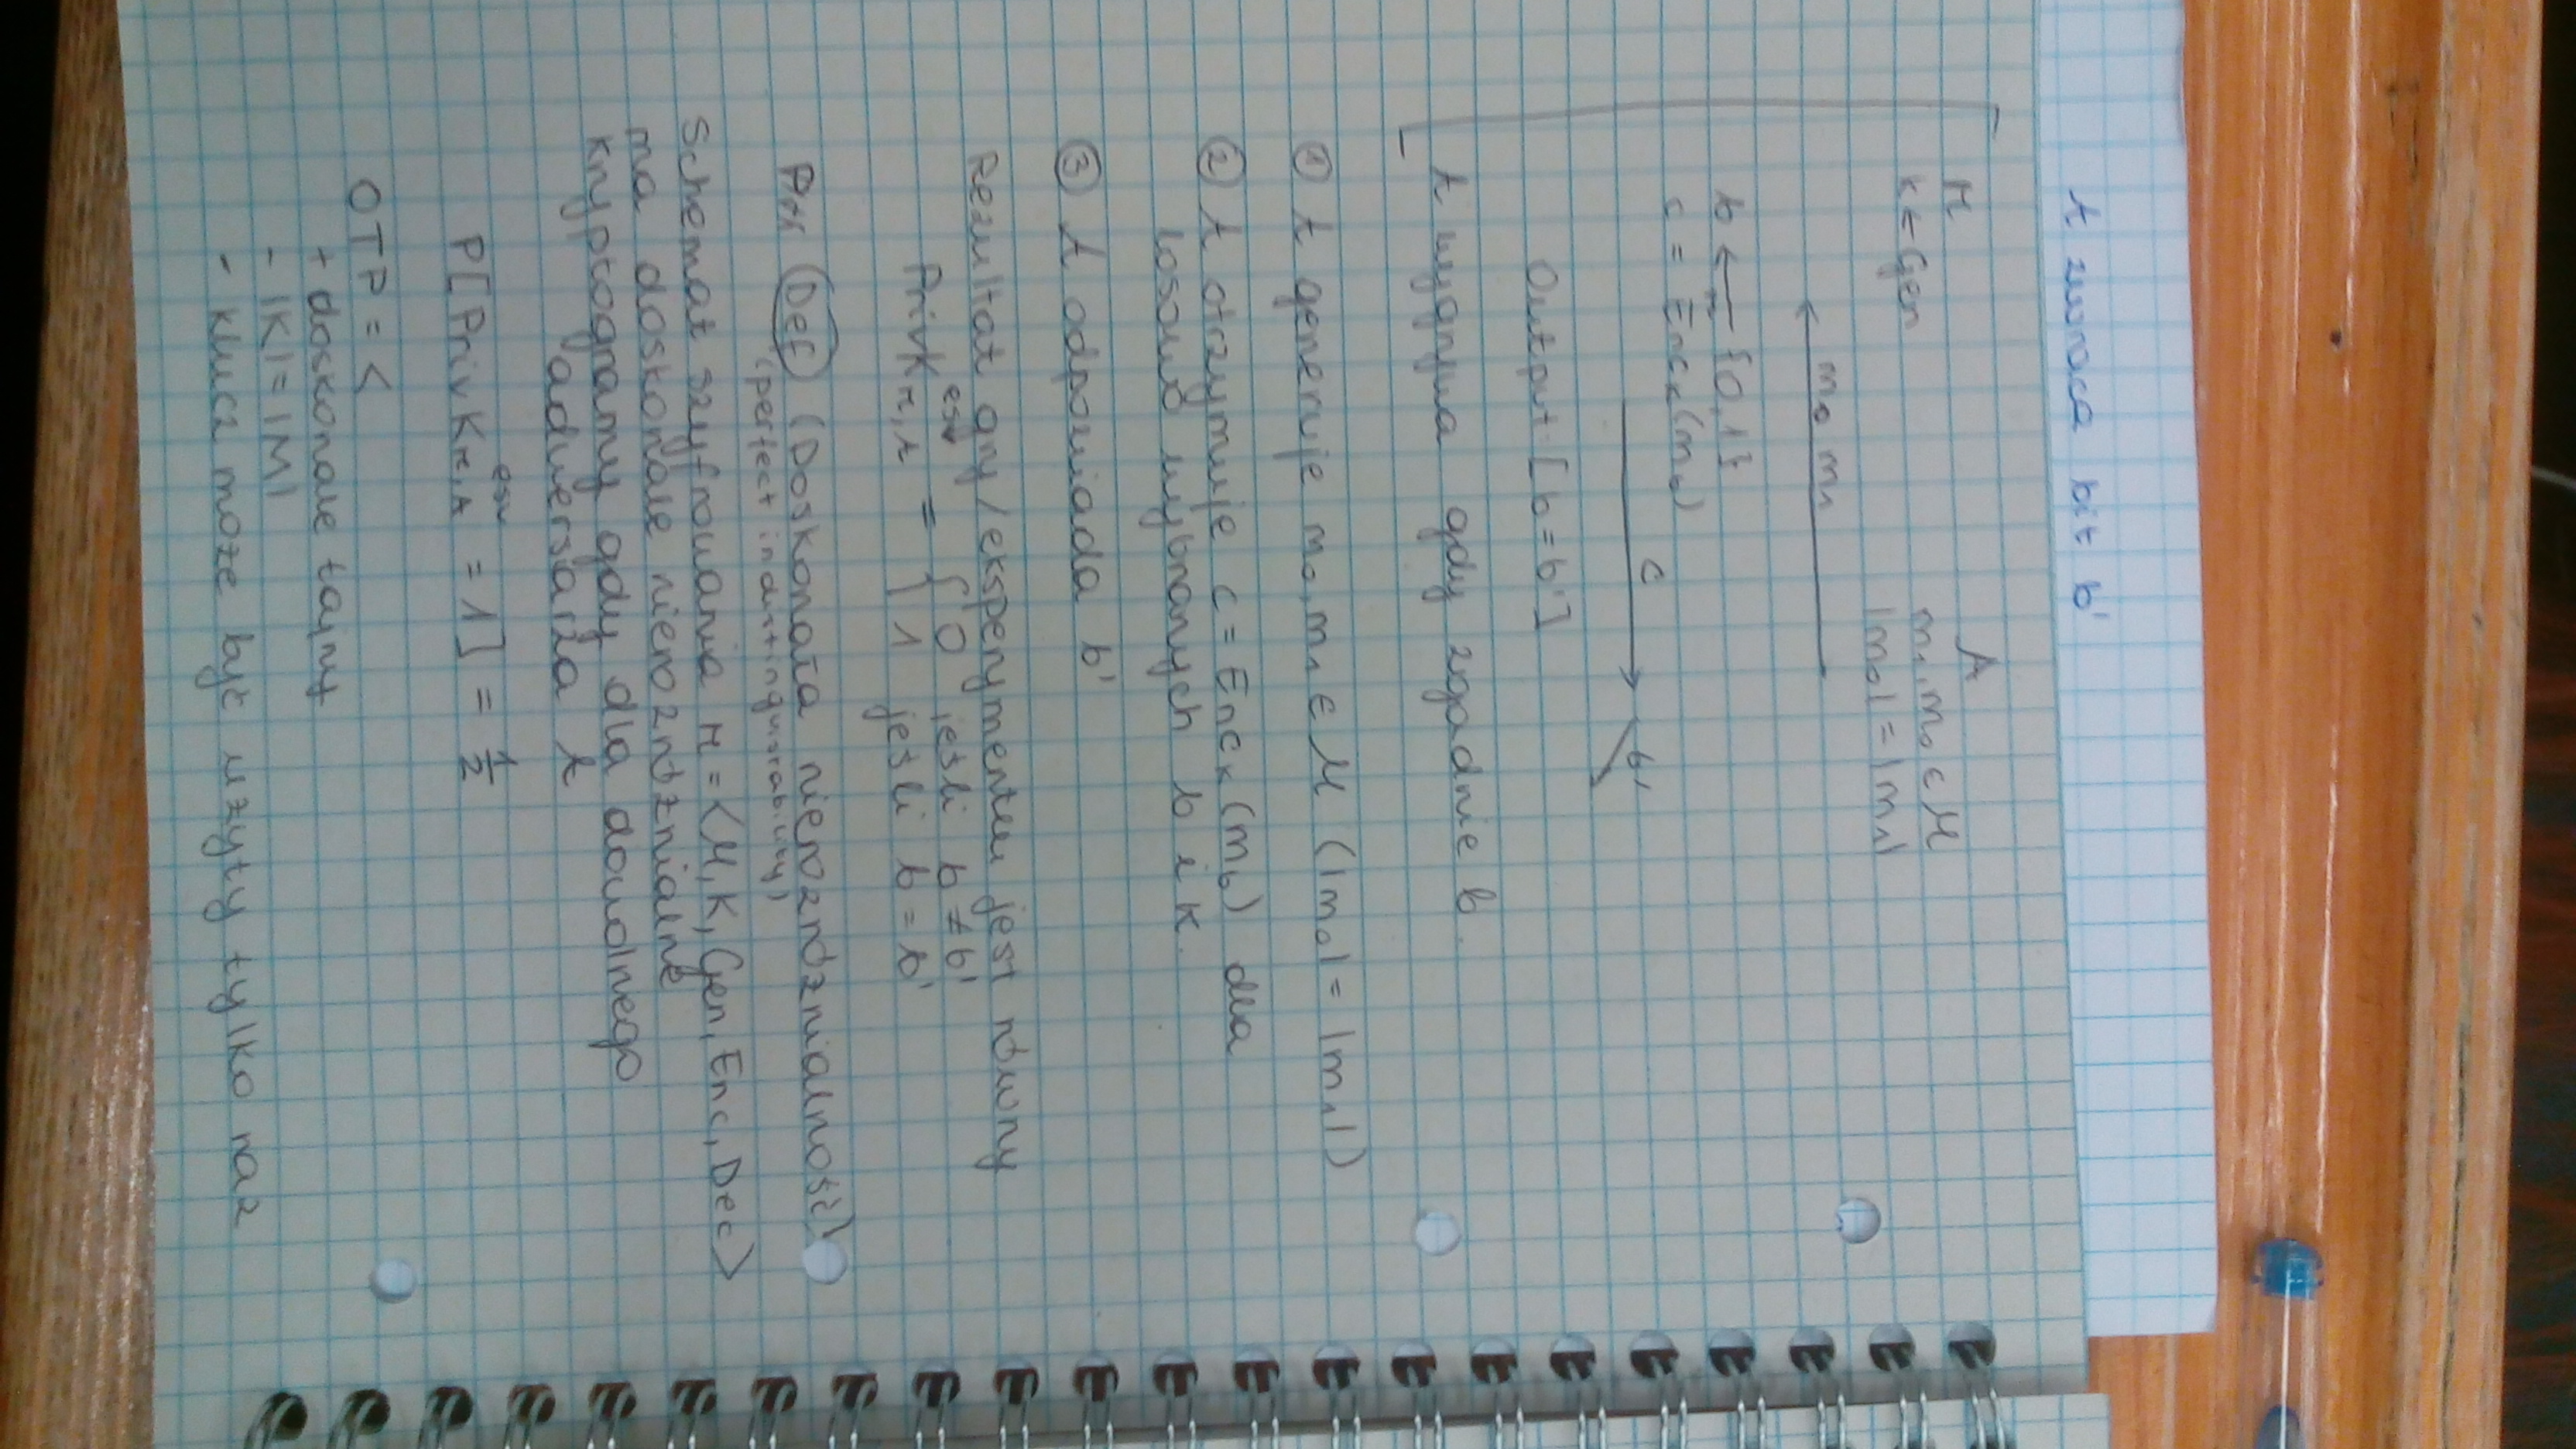 A zwraca bit b'
π A
k ← Gen m₁, m₀ ∈ M
|m₀| = |m₁|
m₀ m₁
b ← {0,1}
c = Enc_k(m_b)
c
b'
Output [b = b']
A wygrywa gdy zgadnie b.
① A generuje m₀, m₁ ∈ M (|m₀| = |m₁|)
② A otrzymuje c = Enc_k(m_b) dla
losowo wybranych b i k.
③ A odpowiada b'
Rezultat gry/eksperymentu jest równy
PrivK^{eav}_{π,A} = { 0 jeśli b ≠ b'
1 jeśli b = b'
Def (Doskonała nierozróżnialność)
(perfect indistinguishability)
Schemat szyfrowania π = <M, K, Gen, Enc, Dec>
ma doskonale nierozróżnialne
kryptogramy gdy dla dowolnego
adwersarza A
P[PrivK^{eav}_{π,A} = 1] = 1/2
OTP = <
+ doskonale tajny
- |K| = |M|
- klucz może być użyty tylko raz